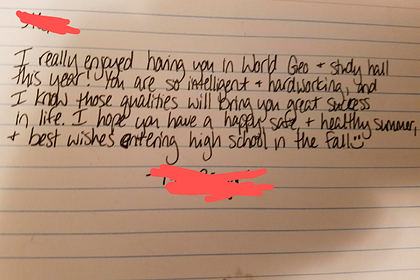 I really enjoyed having you in World Geo + study hall
this year! You are so intelligent + hardworking, and
I know those qualities will bring you great success
in life. I hope you have a happy, safe + healthy summer,
+ best wishes entering high school in the fall☺